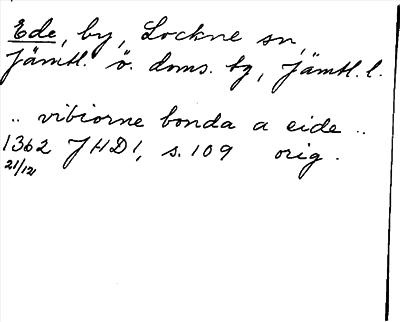 Ede, by, Lockne sn,
Jämtl. ö. doms. tg, Jämtl. l.
.. vibiorne bonda a eide ..
1362 JHD 1, s. 109 orig.
21/12